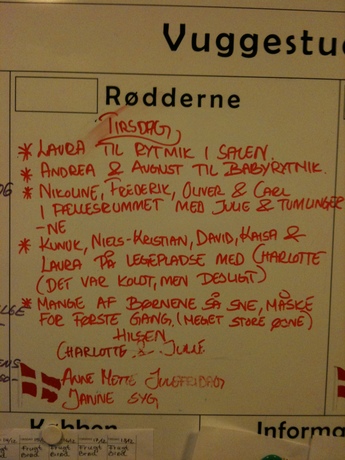 Vuggestu
Rødderne
TIRSDAG
* LAURA TIL RYTMIK I SALEN.
* ANDREA & AUGUST TIL BABYRYTMIK.
* NIKOLINE, FREDERIK, OLIVER & CARL
I FÆLLESRUMMET MED JULIE & TUMLINGER
-NE
* KUNUK, NIELS-KRISTIAN, DAVID, KAISA &
LAURA PÅ LEGEPLADSE MED CHARLOTTE
(DET VAR KOLDT, MEN DEJLIGT)
* MANGE AF BØRNENE SÅ SNE, MÅSKE
FOR FØRSTE GANG, (MEGET STORE ØJNE)
HILSEN
CHARLOTTE & JULIE
ANNE METTE JULEFRIDAG
JANNE SYG
Køkken
Informa
Frugt Frugt Frugt Frugt
Brød Brød Brød Brød